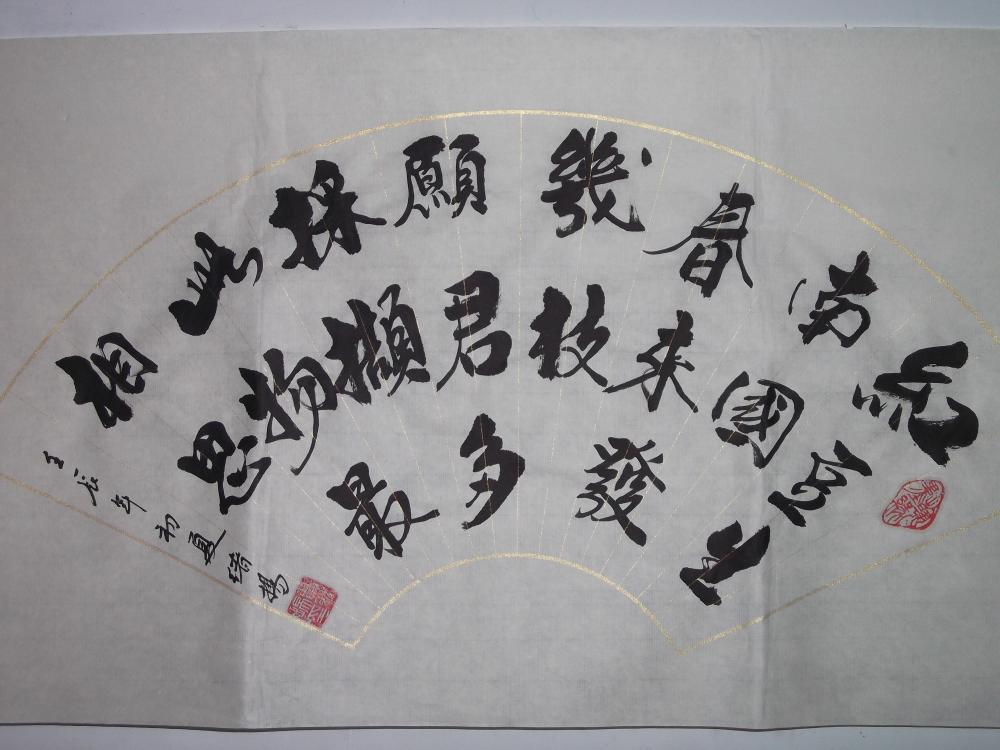 紅豆生
南國
春來發
幾枝
願君多
採擷
此物最
相思
壬辰年初夏